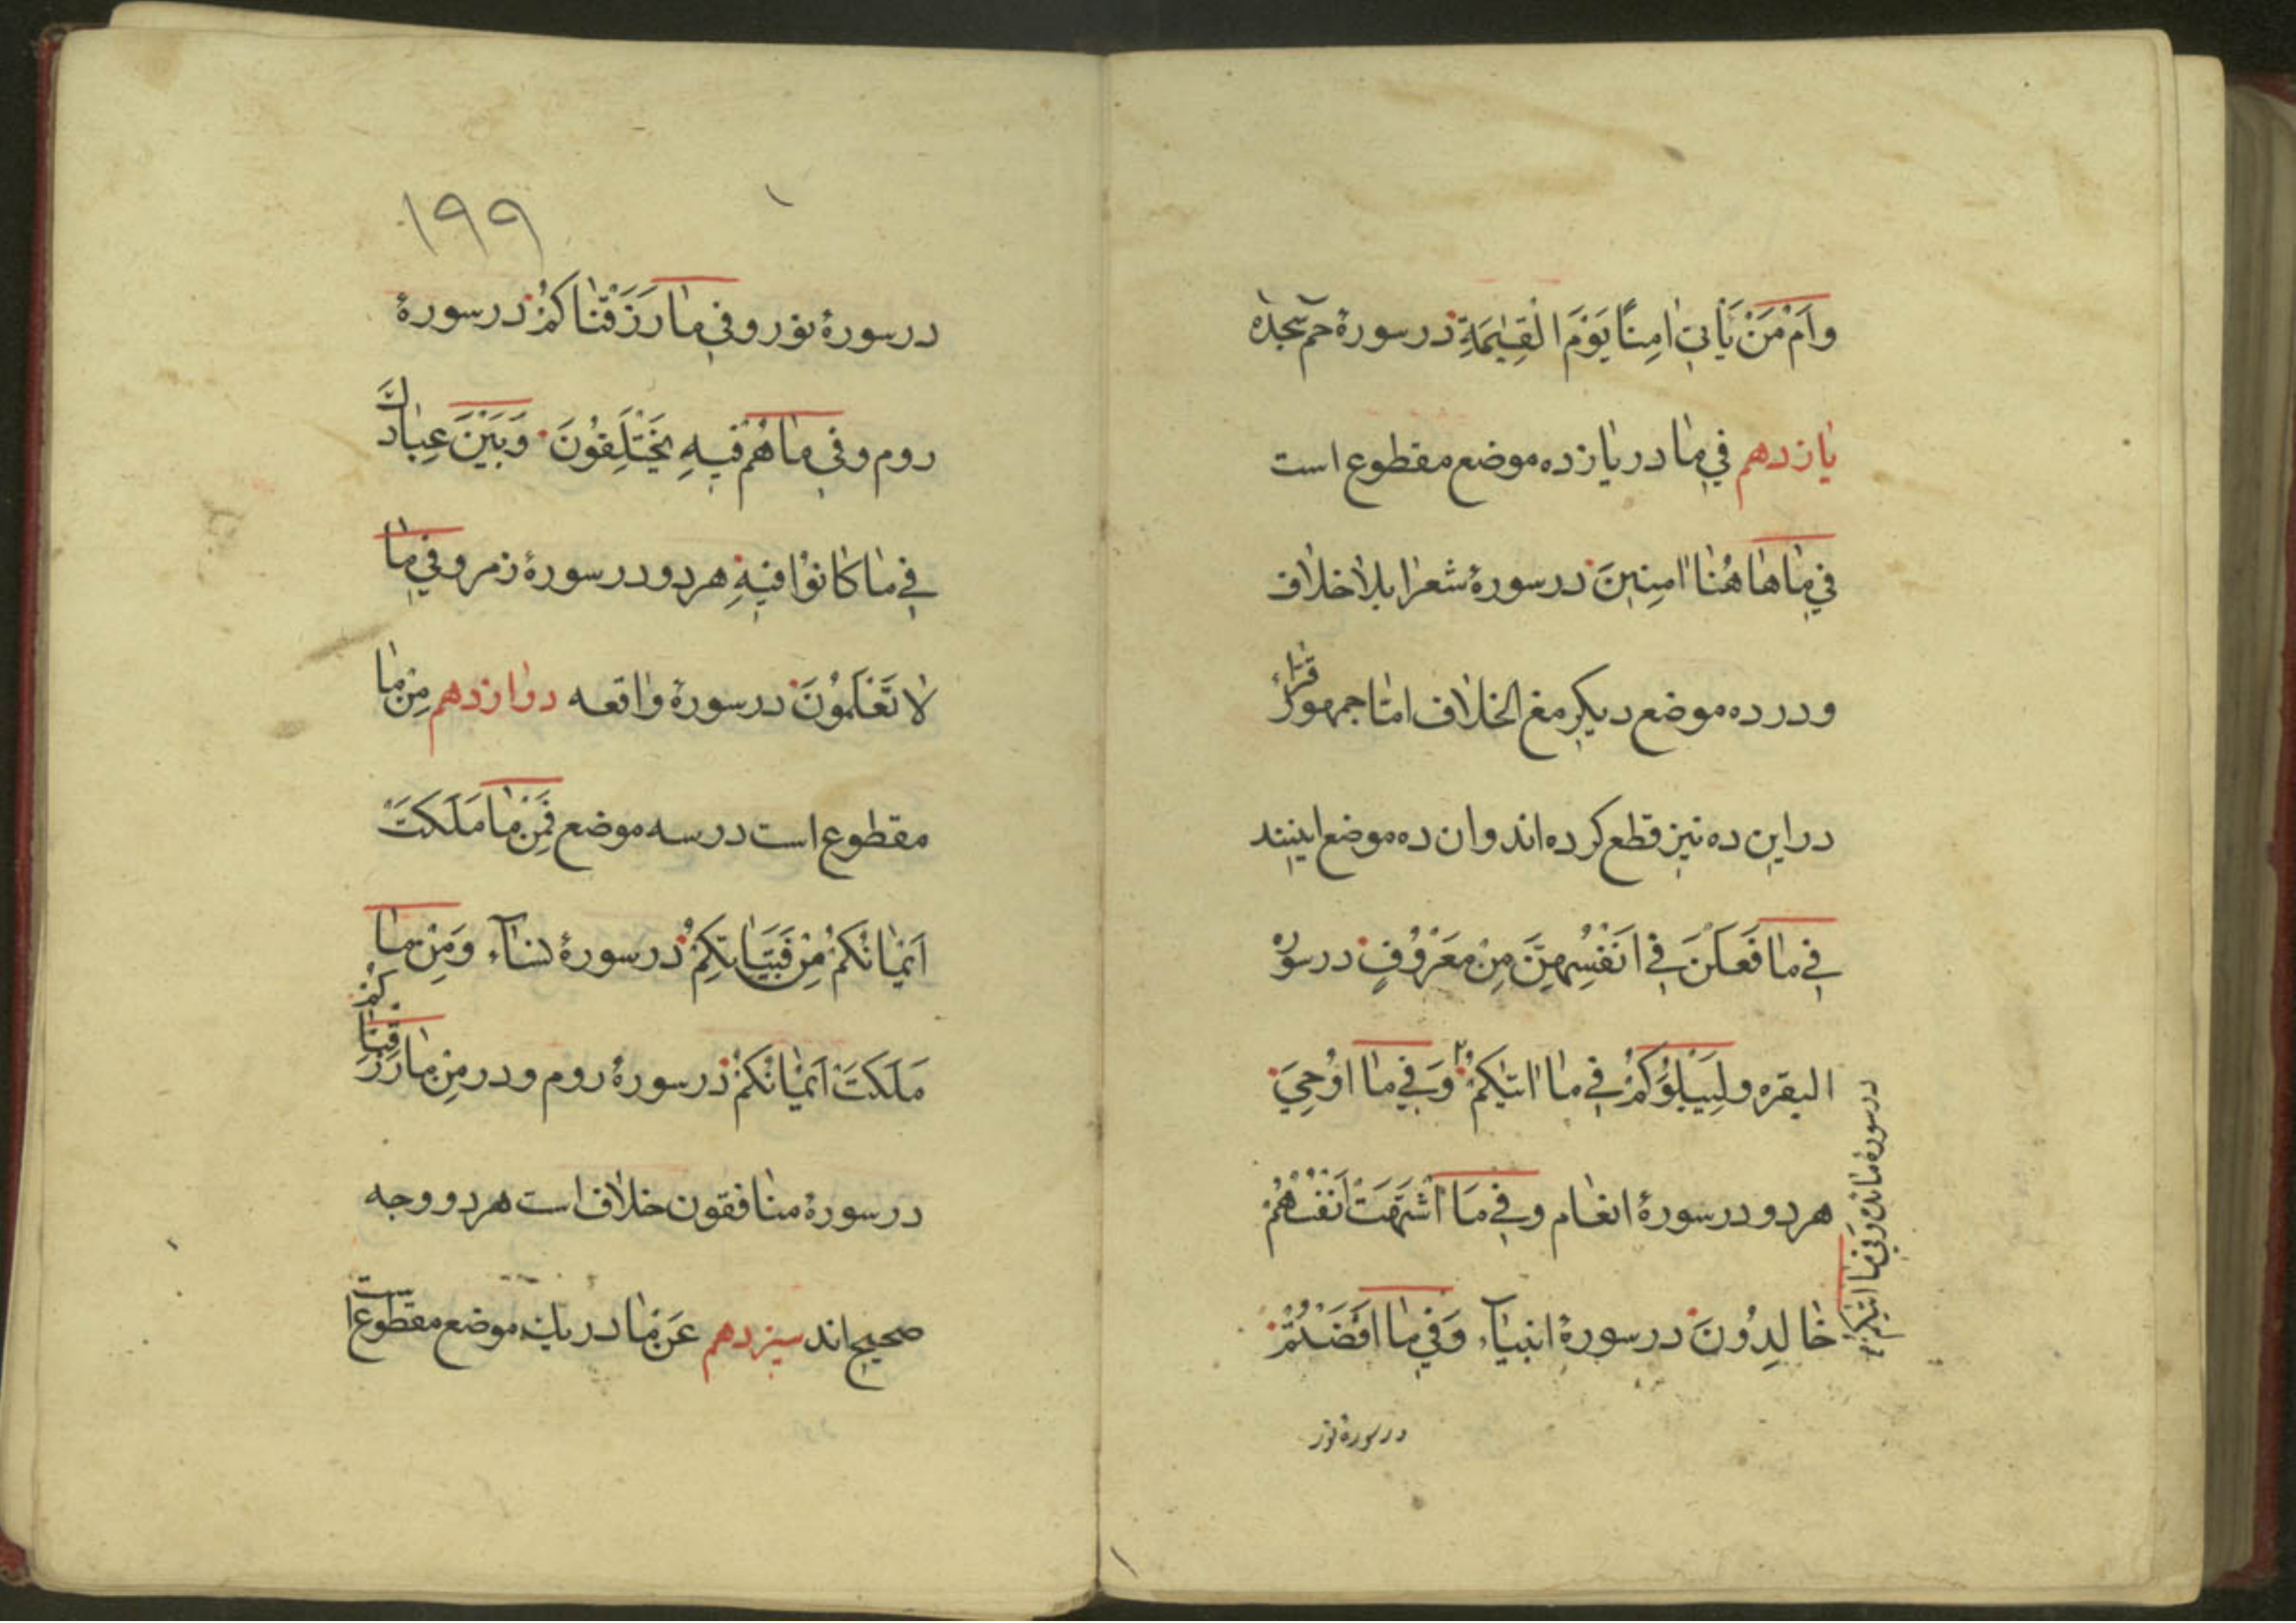 وَاَمْ مَنْ يَأْتِىٓ اٰمِنًا يَوْمَ الْقِيٰمَةِ در سورهٔ حم سجده
يازدهم فِي مٰا در يازده موضع مقطوع است
فِي مٰا هٰاهُنٰا اٰمِنِينَ در سورهٔ شعرا بلا خلاف
و در ده موضع ديكر مع الخلاف امّا جمهور قرّاء
در اين ده نيز قطع كرده اند و ان ده موضع اينند
فِي مٰا فَعَلْنَ فِي اَنْفُسِهِنَّ مِنْ مَعْرُوفٍ در سوره
البقره و لِيَبْلُوَكُمْ فِي مٰا اٰتٰيكُمْ وَ فِي مٰا اُوْحِيَ
در سورهٔ مائده و فِي مٰا اٰتٰيكُمْ
هر دو در سورهٔ انعام و فِي مَا اشْتَهَتْ اَنْفُسُهُمْ
خٰالِدُونَ در سورهٔ انبيآء وَ فِي مٰا اَفَضْتُمْ
در سورهٔ نور
۱۹۹
در سورهٔ نور و فِي مٰا رَزَقْنٰاكُمْ در سورهٔ
روم و فِي مٰا هُمْ فِيهِ يَخْتَلِفُونَ وَ بَيْنَ عِبٰادِكَ
فِي مٰا كٰانُوْا فِيهِ هر دو در سورهٔ زمر و فِي مٰا
لاٰ تَعْلَمُوْنَ در سورهٔ واقعه دوازدهم مِنْ مٰا
مقطوع است در سه موضع فَمِنْ مٰا مَلَكَتْ
اَيْمٰانُكُمْ مِنْ فَتَيَاتِكُمْ در سورهٔ نسآء وَ مِنْ مٰا
مَلَكَتْ اَيْمٰانُكُمْ در سورهٔ روم و در مِنْ مٰا رَزَقْنٰاكُمْ
در سورهٔ منافقون خلاف است هر دو وجه
صحيح اند سيزدهم عَنْ مٰا در يك موضع مقطوع است